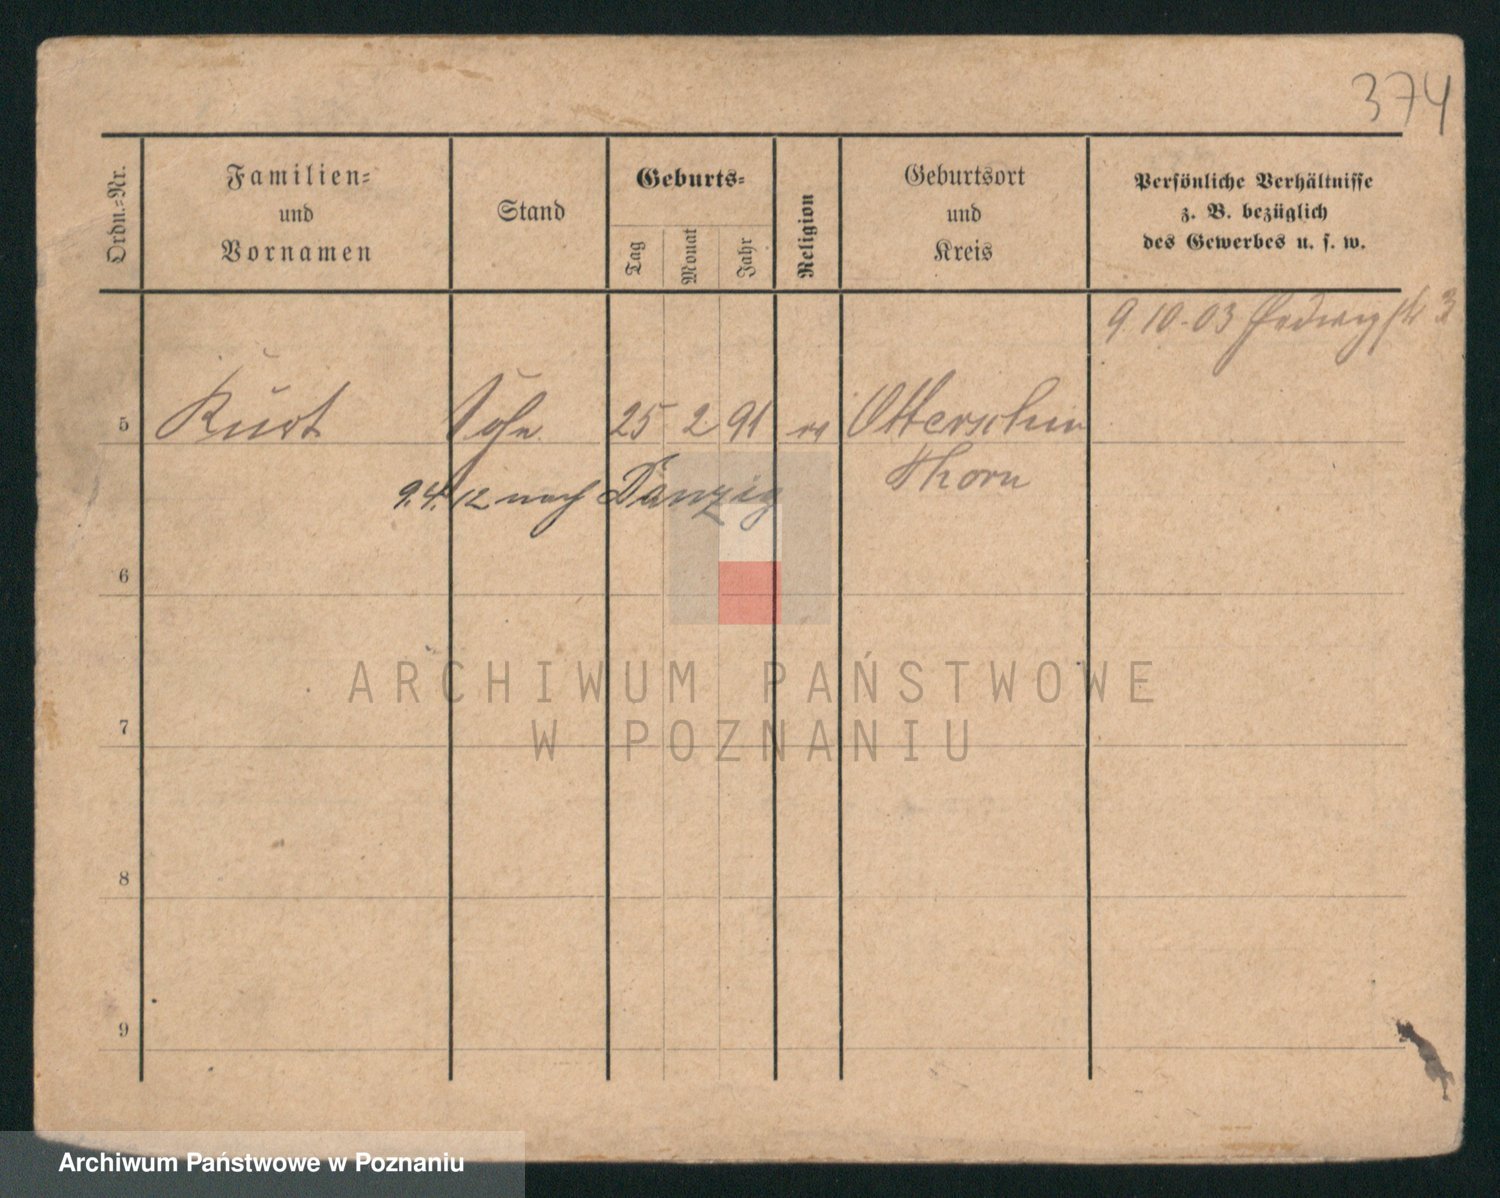 374
Ordn.-Nr.
Familien-
und
Vornamen
Stand
Geburts-
Tag
Monat
Jahr
Religion
Geburtsort
und
Kreis
Persönliche Verhältnisse
z. B. bezüglich
des Gewerbes u. s. w.
9.10.03 Hedwigstr 3
5 Kurt Sohn 25 2 91 Otterschin
Thorn
9.4.12 nach Danzig
6
ARCHIWUM PAŃSTWOWE
W POZNANIU
7
8
9
Archiwum Państwowe w Poznaniu